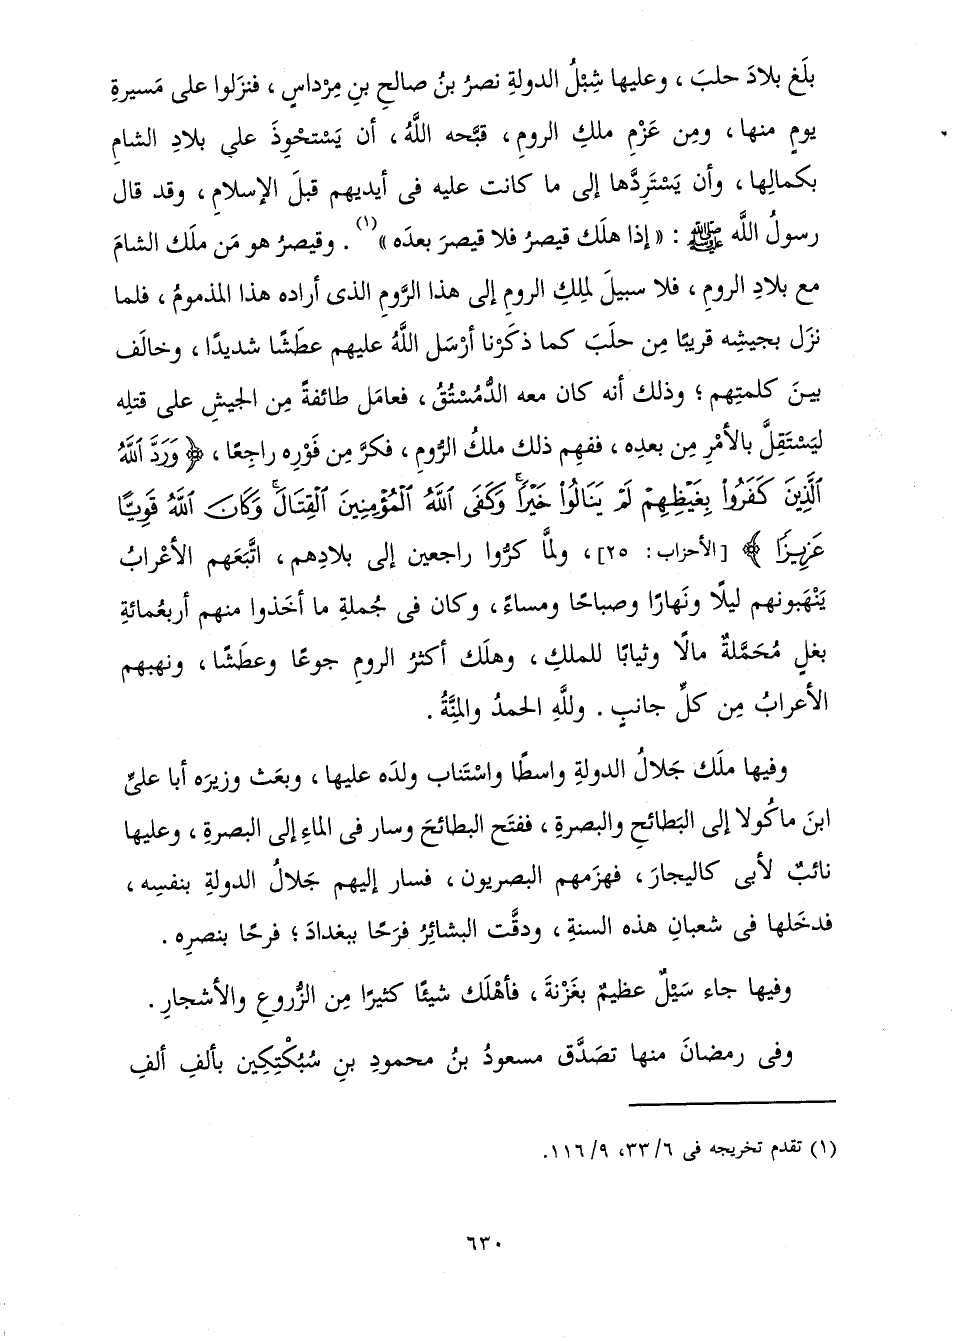 بلَغ بلادَ حلبَ ، وعليها شِبْلُ الدولةِ نصرُ بنُ صالحِ بنِ مِرْداسٍ ، فنزَلوا على مَسيرةِ
يومٍ منها ، ومِن عَزْمِ ملكِ الرومِ ، قبَّحه اللَّهُ ، أن يَسْتحْوِذَ على بلادِ الشامِ
بكمالِها ، وأن يَسْتَرِدَّها إلى ما كانت عليه فى أيديهم قبلَ الإسلامِ ، وقد قال
رسولُ اللَّه ﷺ : « إذا هلَك قيصرُ فلا قيصرَ بعدَه »(١) . وقيصرُ هو مَن ملَك الشامَ
مع بلادِ الرومِ ، فلا سبيلَ لملِكِ الرومِ إلى هذا الرَّومِ الذى أراده هذا المذمومُ ، فلما
نزَل بجيشِه قريبًا مِن حلَبَ كما ذكَرْنا أرْسَل اللَّهُ عليهم عطَشًا شديدًا ، وخالَف
بينَ كلمتِهم ؛ وذلك أنه كان معه الدُّمُسْتُقُ ، فعامَل طائفةً مِن الجيشِ على قتلِه
ليَسْتَقِلَّ بالأمْرِ مِن بعدِه ، ففهِم ذلك ملكُ الرُّومِ ، فكرَّ مِن فَوْرِه راجعًا ، ﴿ وَرَدَّ ٱللَّهُ
ٱلَّذِينَ كَفَرُواْ بِغَيْظِهِمْ لَمْ يَنَالُواْ خَيْرًاۚ وَكَفَى ٱللَّهُ ٱلْمُؤْمِنِينَ ٱلْقِتَالَۚ وَكَانَ ٱللَّهُ قَوِيًّا
عَزِيزًا ﴾ [الأحزاب: ٢٥] ، ولمَّا كرُّوا راجعين إلى بلادِهم ، اتَّبَعَهم الأعْرابُ
يَنْهَبونهم ليلًا ونَهارًا وصباحًا ومساءً ، وكان فى جُملةِ ما أخَذوا منهم أربعُمائةِ
بغلٍ مُحَمَّلةٌ مالًا وثيابًا للملكِ ، وهلَك أكثرُ الرومِ جوعًا وعطَشًا ، ونهبهم
الأعرابُ مِن كلِّ جانبٍ . وللَّهِ الحمدُ والمِنَّةُ .
وفيها ملَك جَلالُ الدولةِ واسطًا واسْتَناب ولدَه عليها ، وبعَث وزيرَه أبا علىِّ
ابنَ ماكُولا إلى البَطائحِ والبصرةِ ، ففتَح البطائحَ وسار فى الماءِ إلى البصرةِ ، وعليها
نائبٌ لأبى كاليجارَ ، فهزَمهم البصريون ، فسار إليهم جَلالُ الدولةِ بنفسِه ،
فدخَلها فى شعبانِ هذه السنةِ ، ودقَّت البشائرُ فرَحًا ببغدادَ ؛ فرحًا بنصرِه .
وفيها جاء سَيْلٌ عظيمٌ بغَزْنةَ ، فأهْلَك شيئًا كثيرًا مِن الزُّروعِ والأشجارِ .
وفى رمضانَ منها تصَدَّق مسعودُ بنُ محمودِ بنِ سُبُكْتِكِين بألفِ ألفِ
(١) تقدم تخريجه فى ٦/ ٣٣، ٩/ ١١٦.
٦٣٠